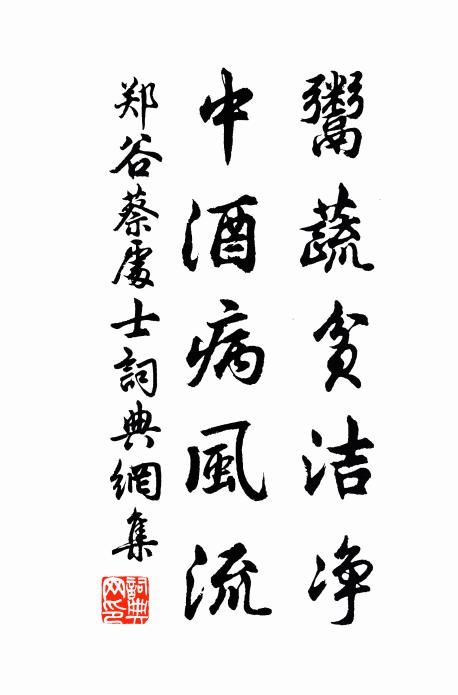 鬻蔬贫洁净
中酒病風流
郑谷蔡處士詞典網集
詞典
网印